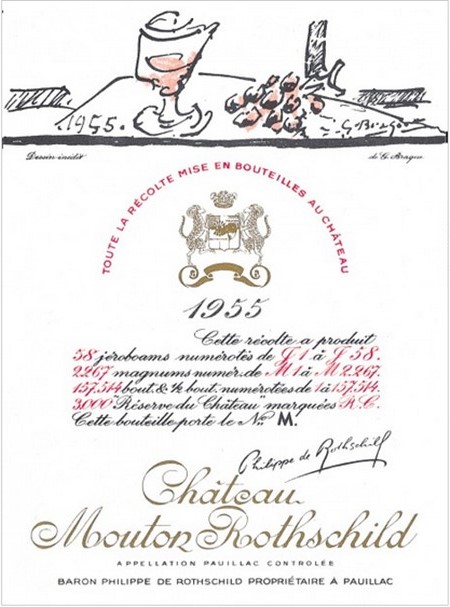 1955.
G. Braque
Dessin inédit
de G. Braque
TOUTE LA RÉCOLTE MISE EN BOUTEILLES AU CHÂTEAU
1955
Cette récolte a produit
58 jéroboams numérotés de J 1 à J 58.
2267 magnums numér. de M 1 à M 2267.
157.514 bout. & ½ bout. numérotées de 1 à 157.514.
3.000 "Réserve du Château" marquées R.C.
Cette bouteille porte le No. M.
Philippe de Rothschild
Château
Mouton Rothschild
APPELLATION PAUILLAC CONTROLÉE
BARON PHILIPPE DE ROTHSCHILD PROPRIÉTAIRE A PAUILLAC